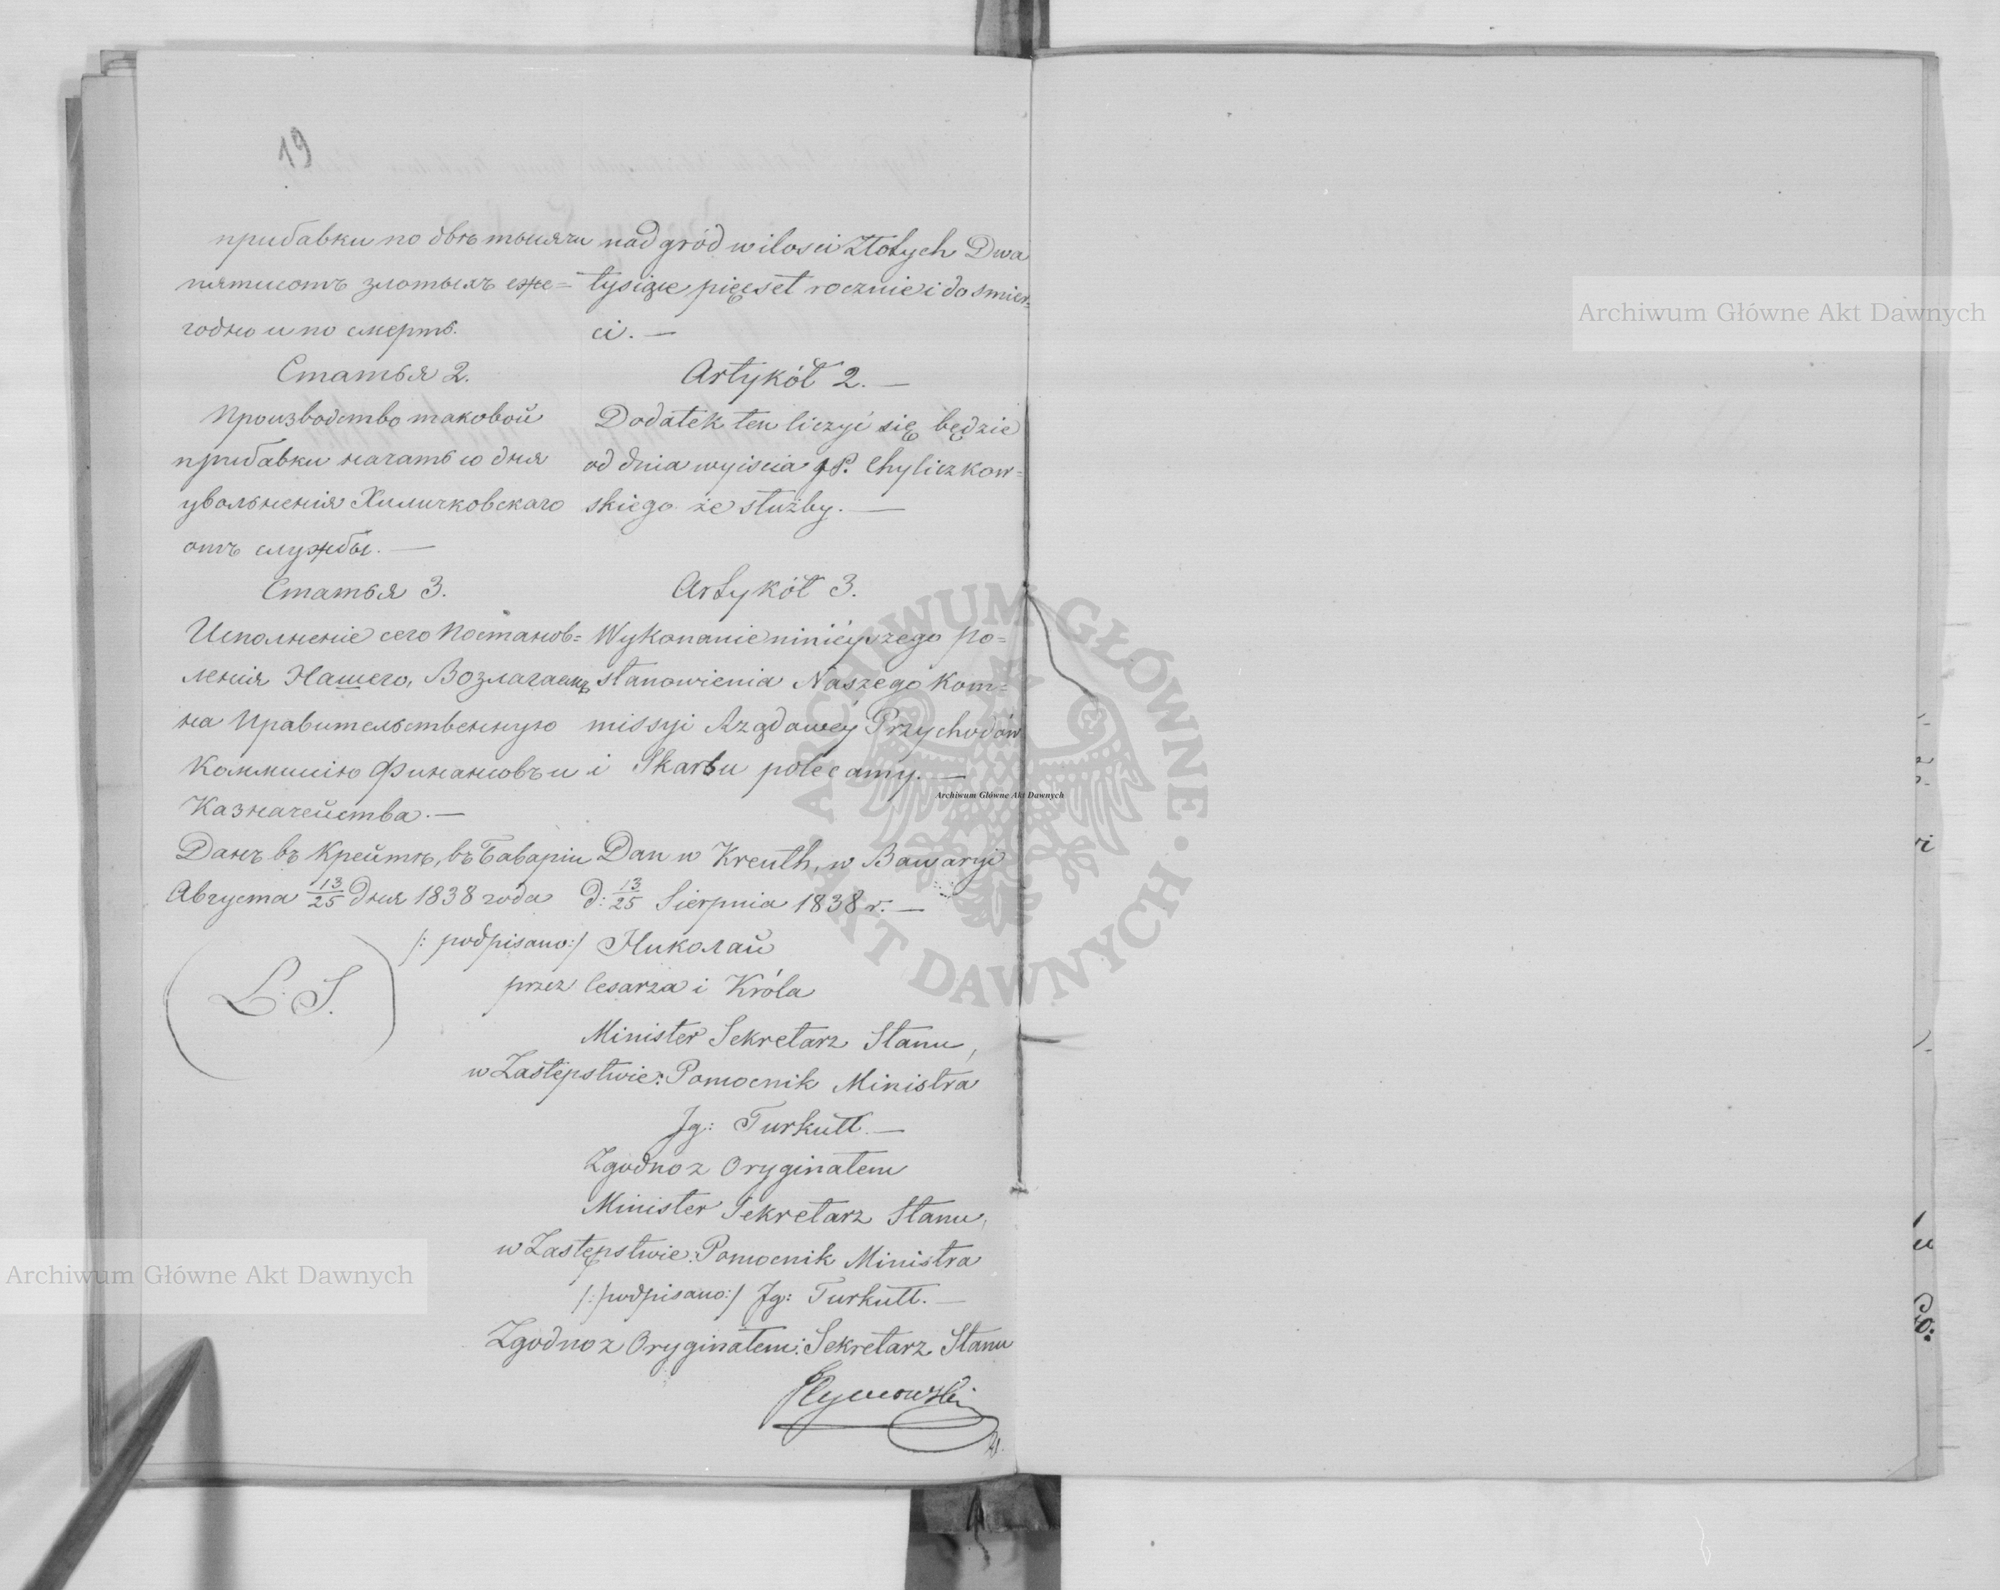 19
прибавки по двѣ тысячи
пятисотъ злотыхъ еже=
годно и по смерть.
Статья 2.
Производство таковой
прибавки начать со дня
увольненія Хиличковскаго
отъ службы. —
Статья 3.
Исполненіе сего Постанов=
ленія Нашего, Возлагаемъ
на Правительственную
Коммисію Финансовъ и
Казначейства. —
Данъ въ Крейтѣ, въ Баваріи
Августа 13/25 дня 1838 года
nadgród w ilosci Złotych Dwa
tysiące pięcset rocznie i do smier=
ci. —
Artykół 2. —
Dodatek ten liczyć się będzie
od dnia wyiscia JP. Chyliczkow=
skiego ze służby. —
Artykół 3.
Wykonanie ninieyszego po=
stanowienia Naszego Kom=
missyi Rządowéy Przychodów
i Skarbu polecamy. —
Dan w Kreuth, w Bawaryi
d: 13/25 Sierpnia 1838 r. —
/: podpisano:/ Николай
przez Cesarza i Króla
L. S.
Minister Sekretarz Stanu,
w Zastępstwie: Pomocnik Ministra
Jg: Turkułł. —
Zgodno z Oryginałem
Minister Sekretarz Stanu,
w Zastępstwie: Pomocnik Ministra
/:podpisano:/ Jg: Turkułł. —
Zgodno z Oryginałem: Sekretarz Stanu
Archiwum Główne Akt Dawnych
ARCHIWUM GŁÓWNE · AKT DAWNYCH ·
Archiwum Główne Akt Dawnych
Archiwum Główne Akt Dawnych